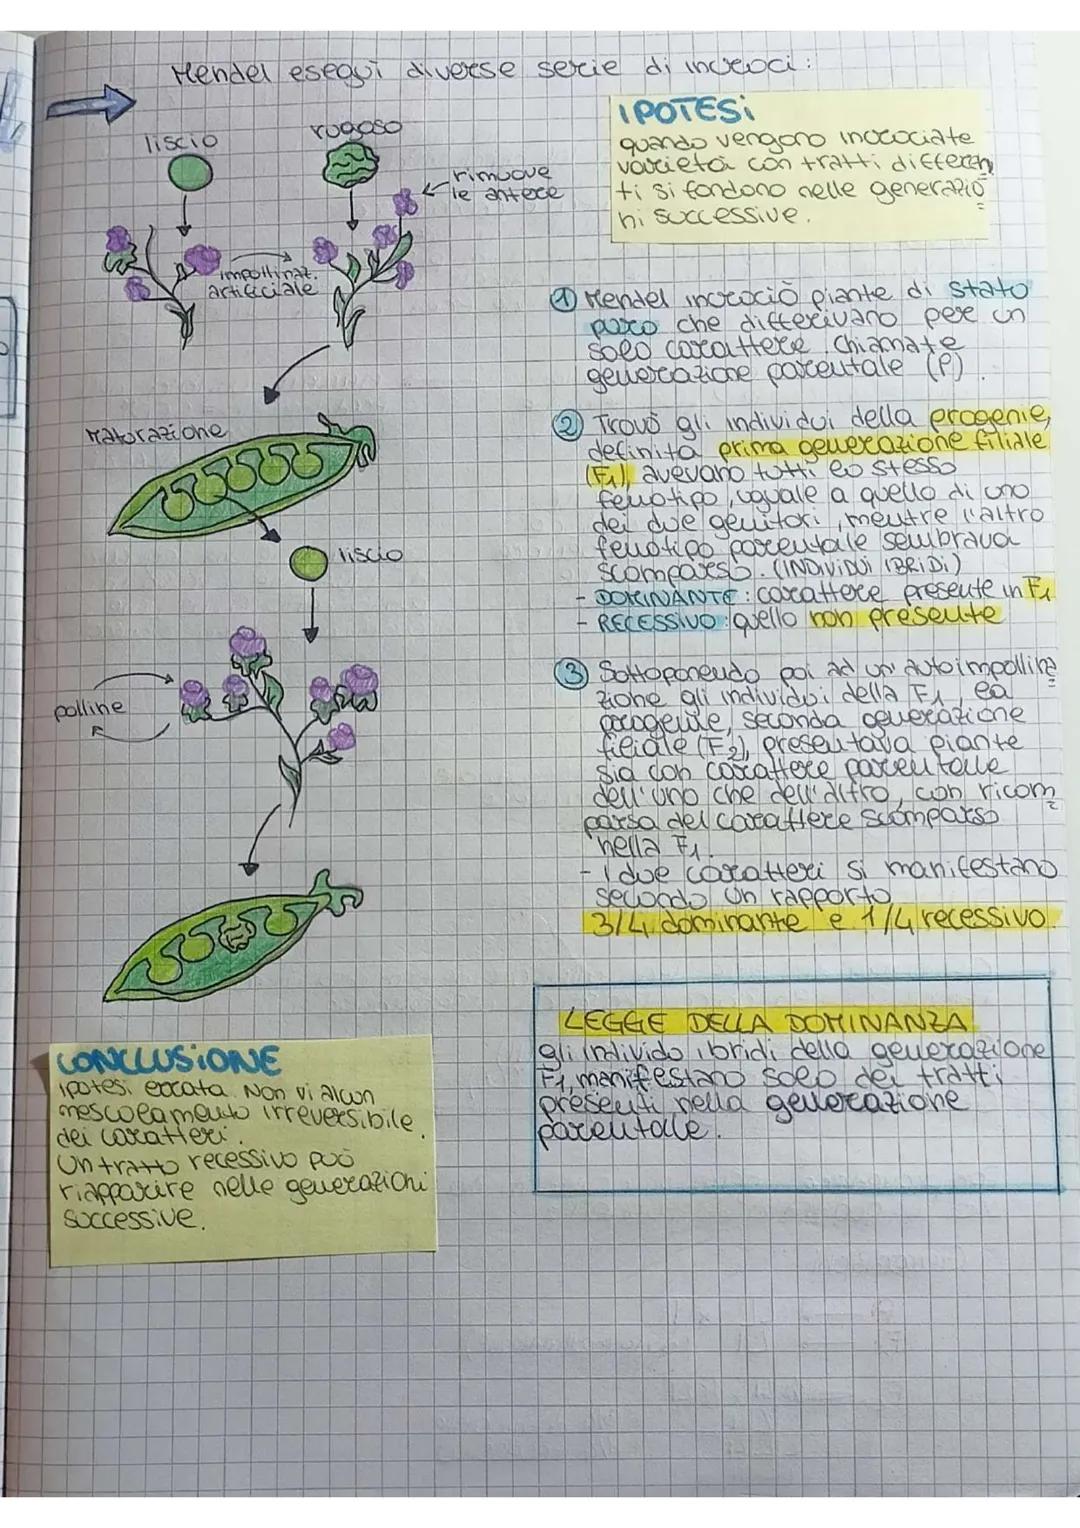 Mendel eseguì diverse serie di incroci:
liscio
rugoso
rimuove
le antere
impollinaz.
artificiale
IPOTESi
quando vengono incrociate
varietà con tratti differen
ti si fondono nelle generazio
ni successive.
Maturazione
liscio
polline
① Mendel incrociò piante di stato
puro che differivano per un
solo carattere, chiamate
generazione parentale (P).
② Trovò gli individui della progenie,
definita prima generazione filiale
(F1), avevano tutti lo stesso
fenotipo, uguale a quello di uno
dei due genitori, mentre l'altro
fenotipo parentale sembrava
scomparso. (INDIVIDUI IBRIDI)
- DOMINANTE: carattere presente in F1
- RECESSIVO: quello non presente
③ Sottoponendo poi ad un' autoimpollina
zione gli individui della F1 la
progenie, seconda generazione
filiale (F2), presentava piante
sia con carattere parentale
dell'uno che dell'altro, con ricom
parsa del carattere scomparso
nella F1.
- I due caratteri si manifestano
secondo un rapporto
3/4 dominante e 1/4 recessivo.
LEGGE DELLA DOMINANZA
gli individo ibridi della generazione
F1, manifestano solo dei tratti
presenti nella generazione
parentale.
CONCLUSIONE
ipotesi errata. Non vi alcun
mescolamento irreversibile
dei caratteri.
Un tratto recessivo può
riapparire nelle generazioni
successive.